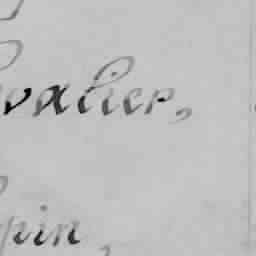 valier,
pin,